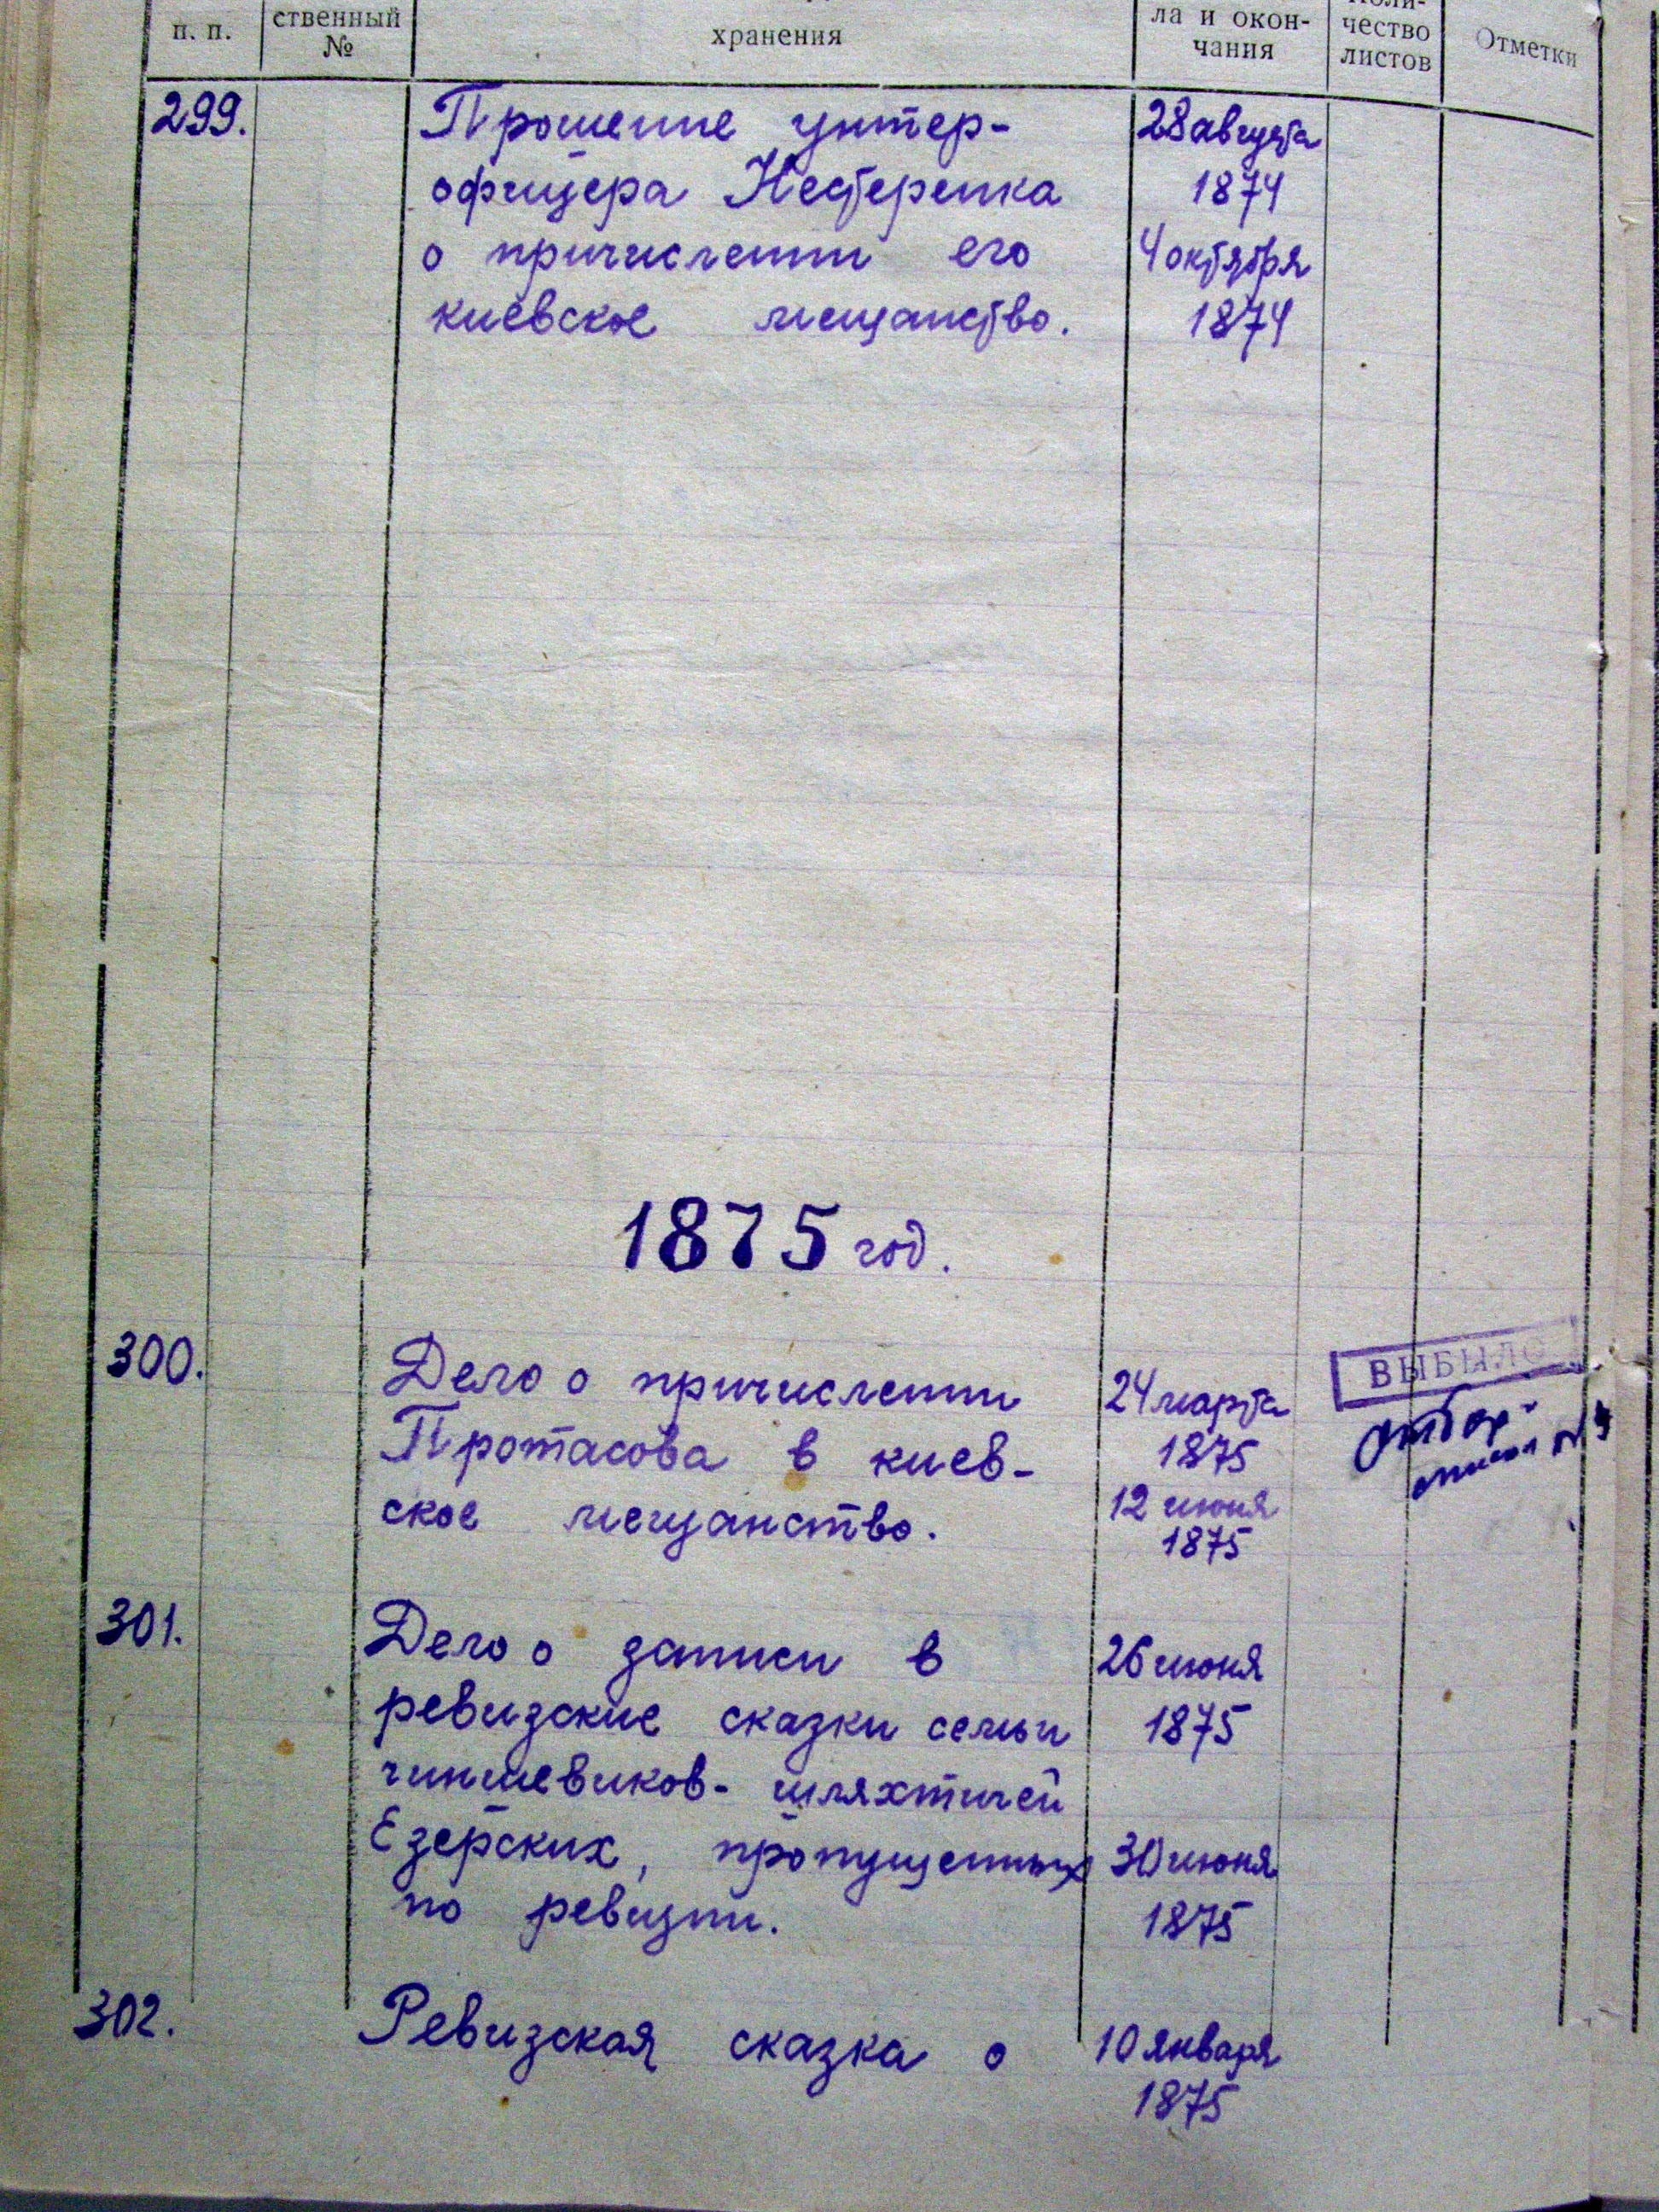 п. п.
ственный
№
хранения
ла и окон-
чания
чество
листов
Отметки
299.
Прошение унтер-
офицера Нестеренка
о причислении его
киевское мещанство.
28 августа
1874
4 октября
1874
1875 год.
300.
Дело о причислении
Протасова в киев-
ское мещанство.
24 марта
1875
12 июня
1875
ВЫБЫЛО
301.
Дело о записи в
ревизские сказки семьи
чиншевиков-шляхтичей
Езерских, пропущенных
по ревизии.
26 июня
1875
30 июня
1875
302.
Ревизская сказка о
10 января
1875